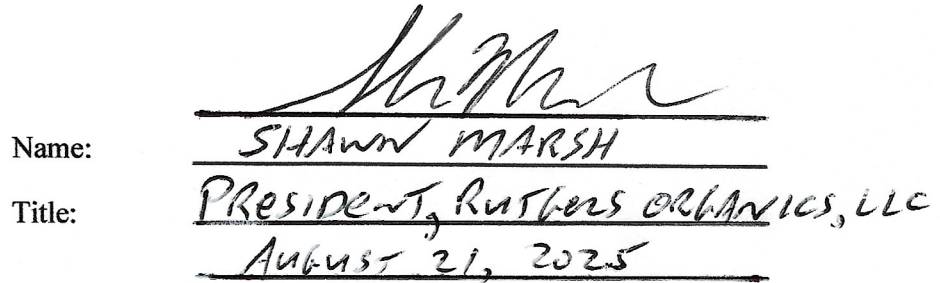 Name: SHAWN MARSH
Title: PRESIDENT, RUTGERS ORGANICS, LLC
AUGUST 21, 2025